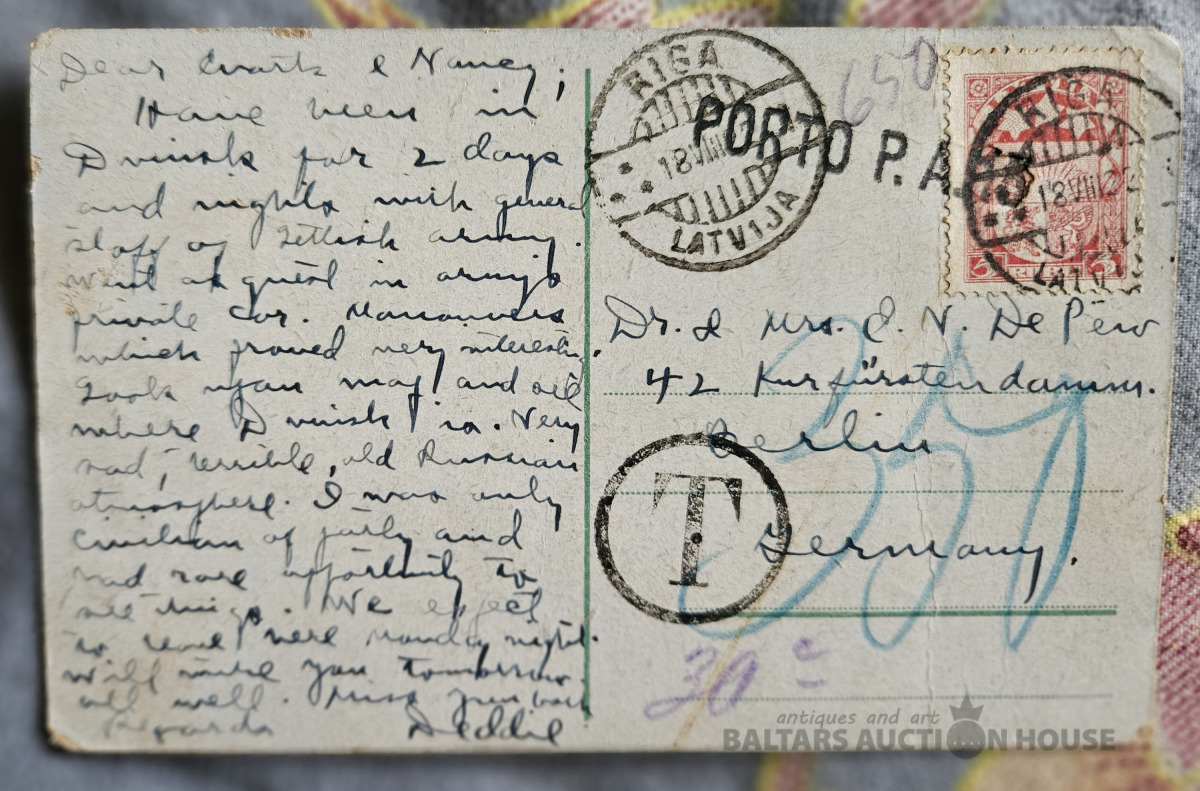 Dear Ewarts & Nancy;
Have been in
Dvinsk for 2 days
and nights with general
staff of Lettish army.
Went as guest in army's
private car. Manouvers
which proved very interesting.
Look upon map and see
where Dvinsk is. Very
sad, terrible, old Russian
atmosphere. I was only
civilian of party and
had rare opportunity to
see things. We expect
to leave here Monday night.
Will write you tomorrow.
all well. Miss you both
Regards Deddie
RIGA
18 VIII
LATVIJA
PORTO P.A.
650
RIGA
18 VIII
LATV
5 5
Dr. & Mrs. C. N. DePew
42 Kurfürstendamm.
Berlin
Germany.
T
30 c
antiques and art
BALTARS AUCTION HOUSE